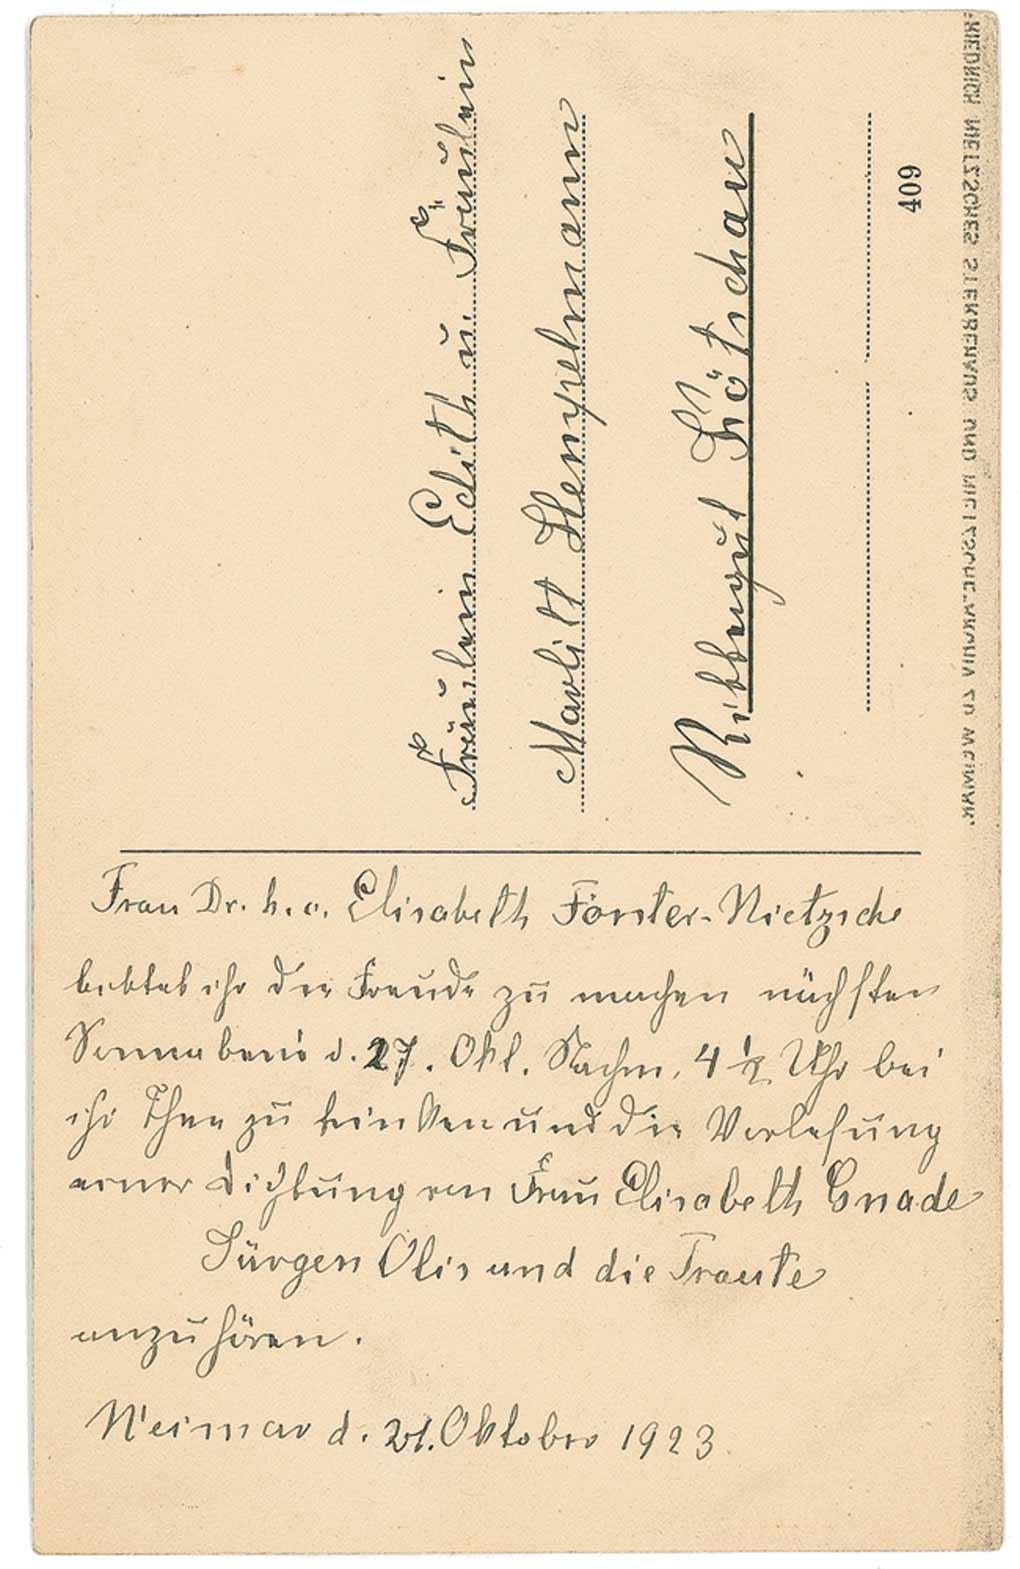 Fräulein Edith u. Fräulein
Marlitt Hempelmann
Rittergut Lötschau
409
FRIEDRICH NIETZSCHES STERBEHAUS UND NIETZSCHE-ARCHIV ZU WEIMAR.
Frau Dr. h. c. Elisabeth Förster-Nietzsche
bittet ihr die Freude zu machen nächsten
Sonnabend d. 27. Okt. Nachm. 4 1/2 Uhr bei
ihr Thee zu trinken und die Vorlesung
einer Dichtung von Frau Elisabeth Gnade
Jürgen Olis und die Traute
anzuhören.
Weimar d. 21. Oktober 1923